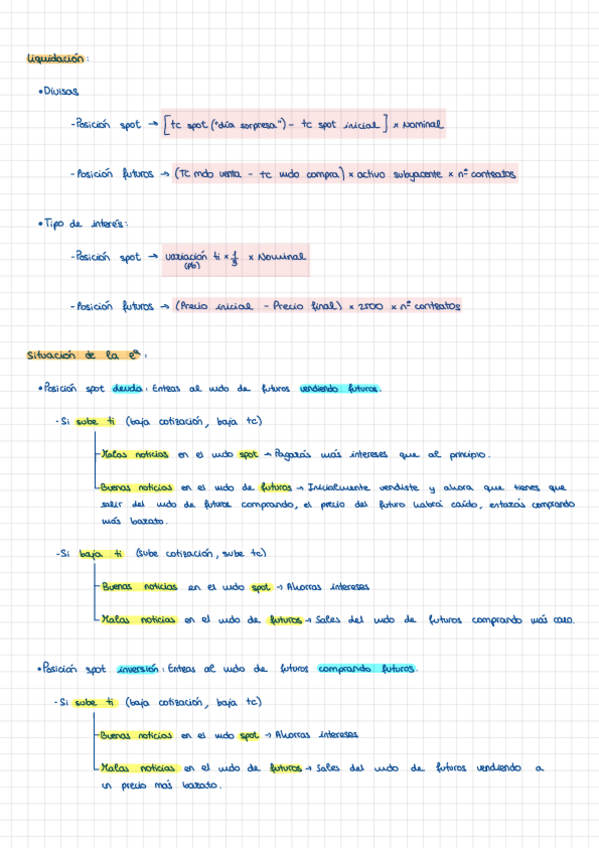 Liquidación:
• Divisas
- Posición spot → [tc spot ("día sorpresa") - tc spot inicial] x Nominal
- Posición futuros → (TC mdo venta - tc mdo compra) x activo subyacente x nº contratos
• Tipo de interés:
- Posición spot → variación ti x 1/5 x Nominal
(pb)
- Posición futuros → (Precio inicial - Precio final) x 2500 x nº contratos
Situación de la eª:
• Posición spot deuda: Entras al mdo de futuros vendiendo futuros.
- Si sube ti (baja cotización, baja tc)
Malas noticias en el mdo spot → Pagarás más intereses que al principio.
Buenas noticias en el mdo de futuros → Inicialmente vendiste y ahora que tienes que
salir del mdo de futuros comprando, el precio del futuro habrá caído, estarás comprando
más barato.
- Si baja ti (sube cotización, sube tc)
Buenas noticias en el mdo spot → Ahorras intereses
Malas noticias en el mdo de futuros → Sales del mdo de futuros comprando más caro.
• Posición spot inversión: Entras al mdo de futuros comprando futuros.
- Si sube ti (baja cotización, baja tc)
Buenas noticias en el mdo spot → Ahorras intereses
Malas noticias en el mdo de futuros → Sales del mdo de futuros vendiendo a
un precio más barato.